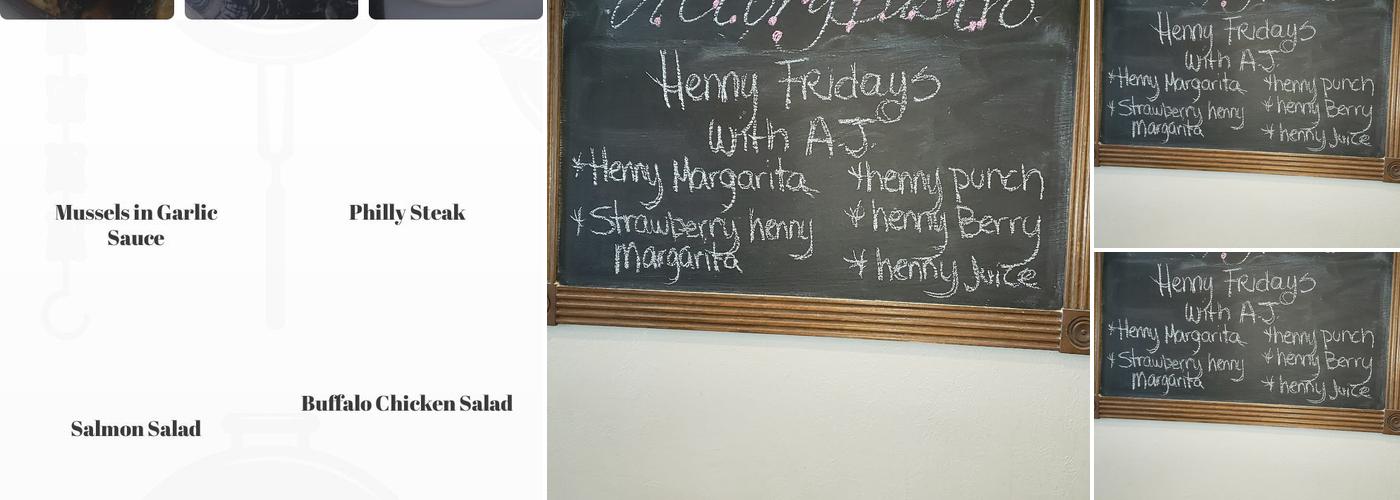 Mussels in Garlic
Sauce
Philly Steak
Salmon Salad
Buffalo Chicken Salad
Henny Fridays
with A.J.
*Henny Margarita
*Strawberry henny
Margarita
*henny punch
*henny Berry
*henny Juice
Henny Fridays
with A.J.
*Henny Margarita
*Strawberry henny
Margarita
*henny punch
*henny Berry
*henny Juice
Henny Fridays
with A.J.
*Henny Margarita
*Strawberry henny
Margarita
*henny punch
*henny Berry
*henny Juice